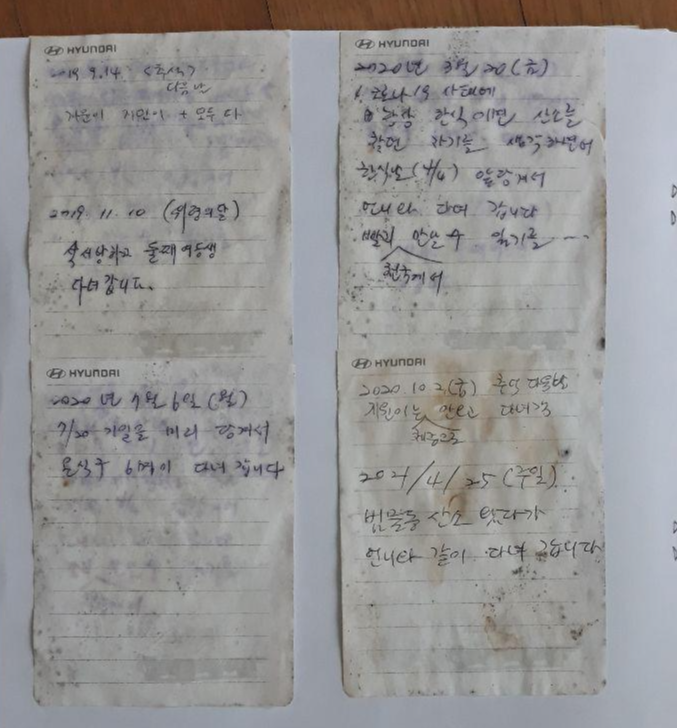 HYUNDAI
2019 9.14 <추석>
다음날
지민이 + 모두 다
2019. 11. 10 (위령의날)
둘째 여동생
다녀갑니다.
HYUNDAI
2020년 7월 6일 (월)
7/20 기일을 미리 당겨서
온식구 6명이 다녀 갑니다
HYUNDAI
2020년 3월 20(금)
코로나 19 사태에
한식에면 산소를
찾던 자기를 생각하면서
한식날(4/4) 앞당겨서
언니와 다녀 갑니다
빨리 만날 수 있기를 ....
천국에서
HYUNDAI
2020. 10. 2(금) 추석 다음날
지원이는 안오고 다녀감
2021/4/25(주일).
범물동 산소 왔다가
언니와 같이 다녀 갑니다